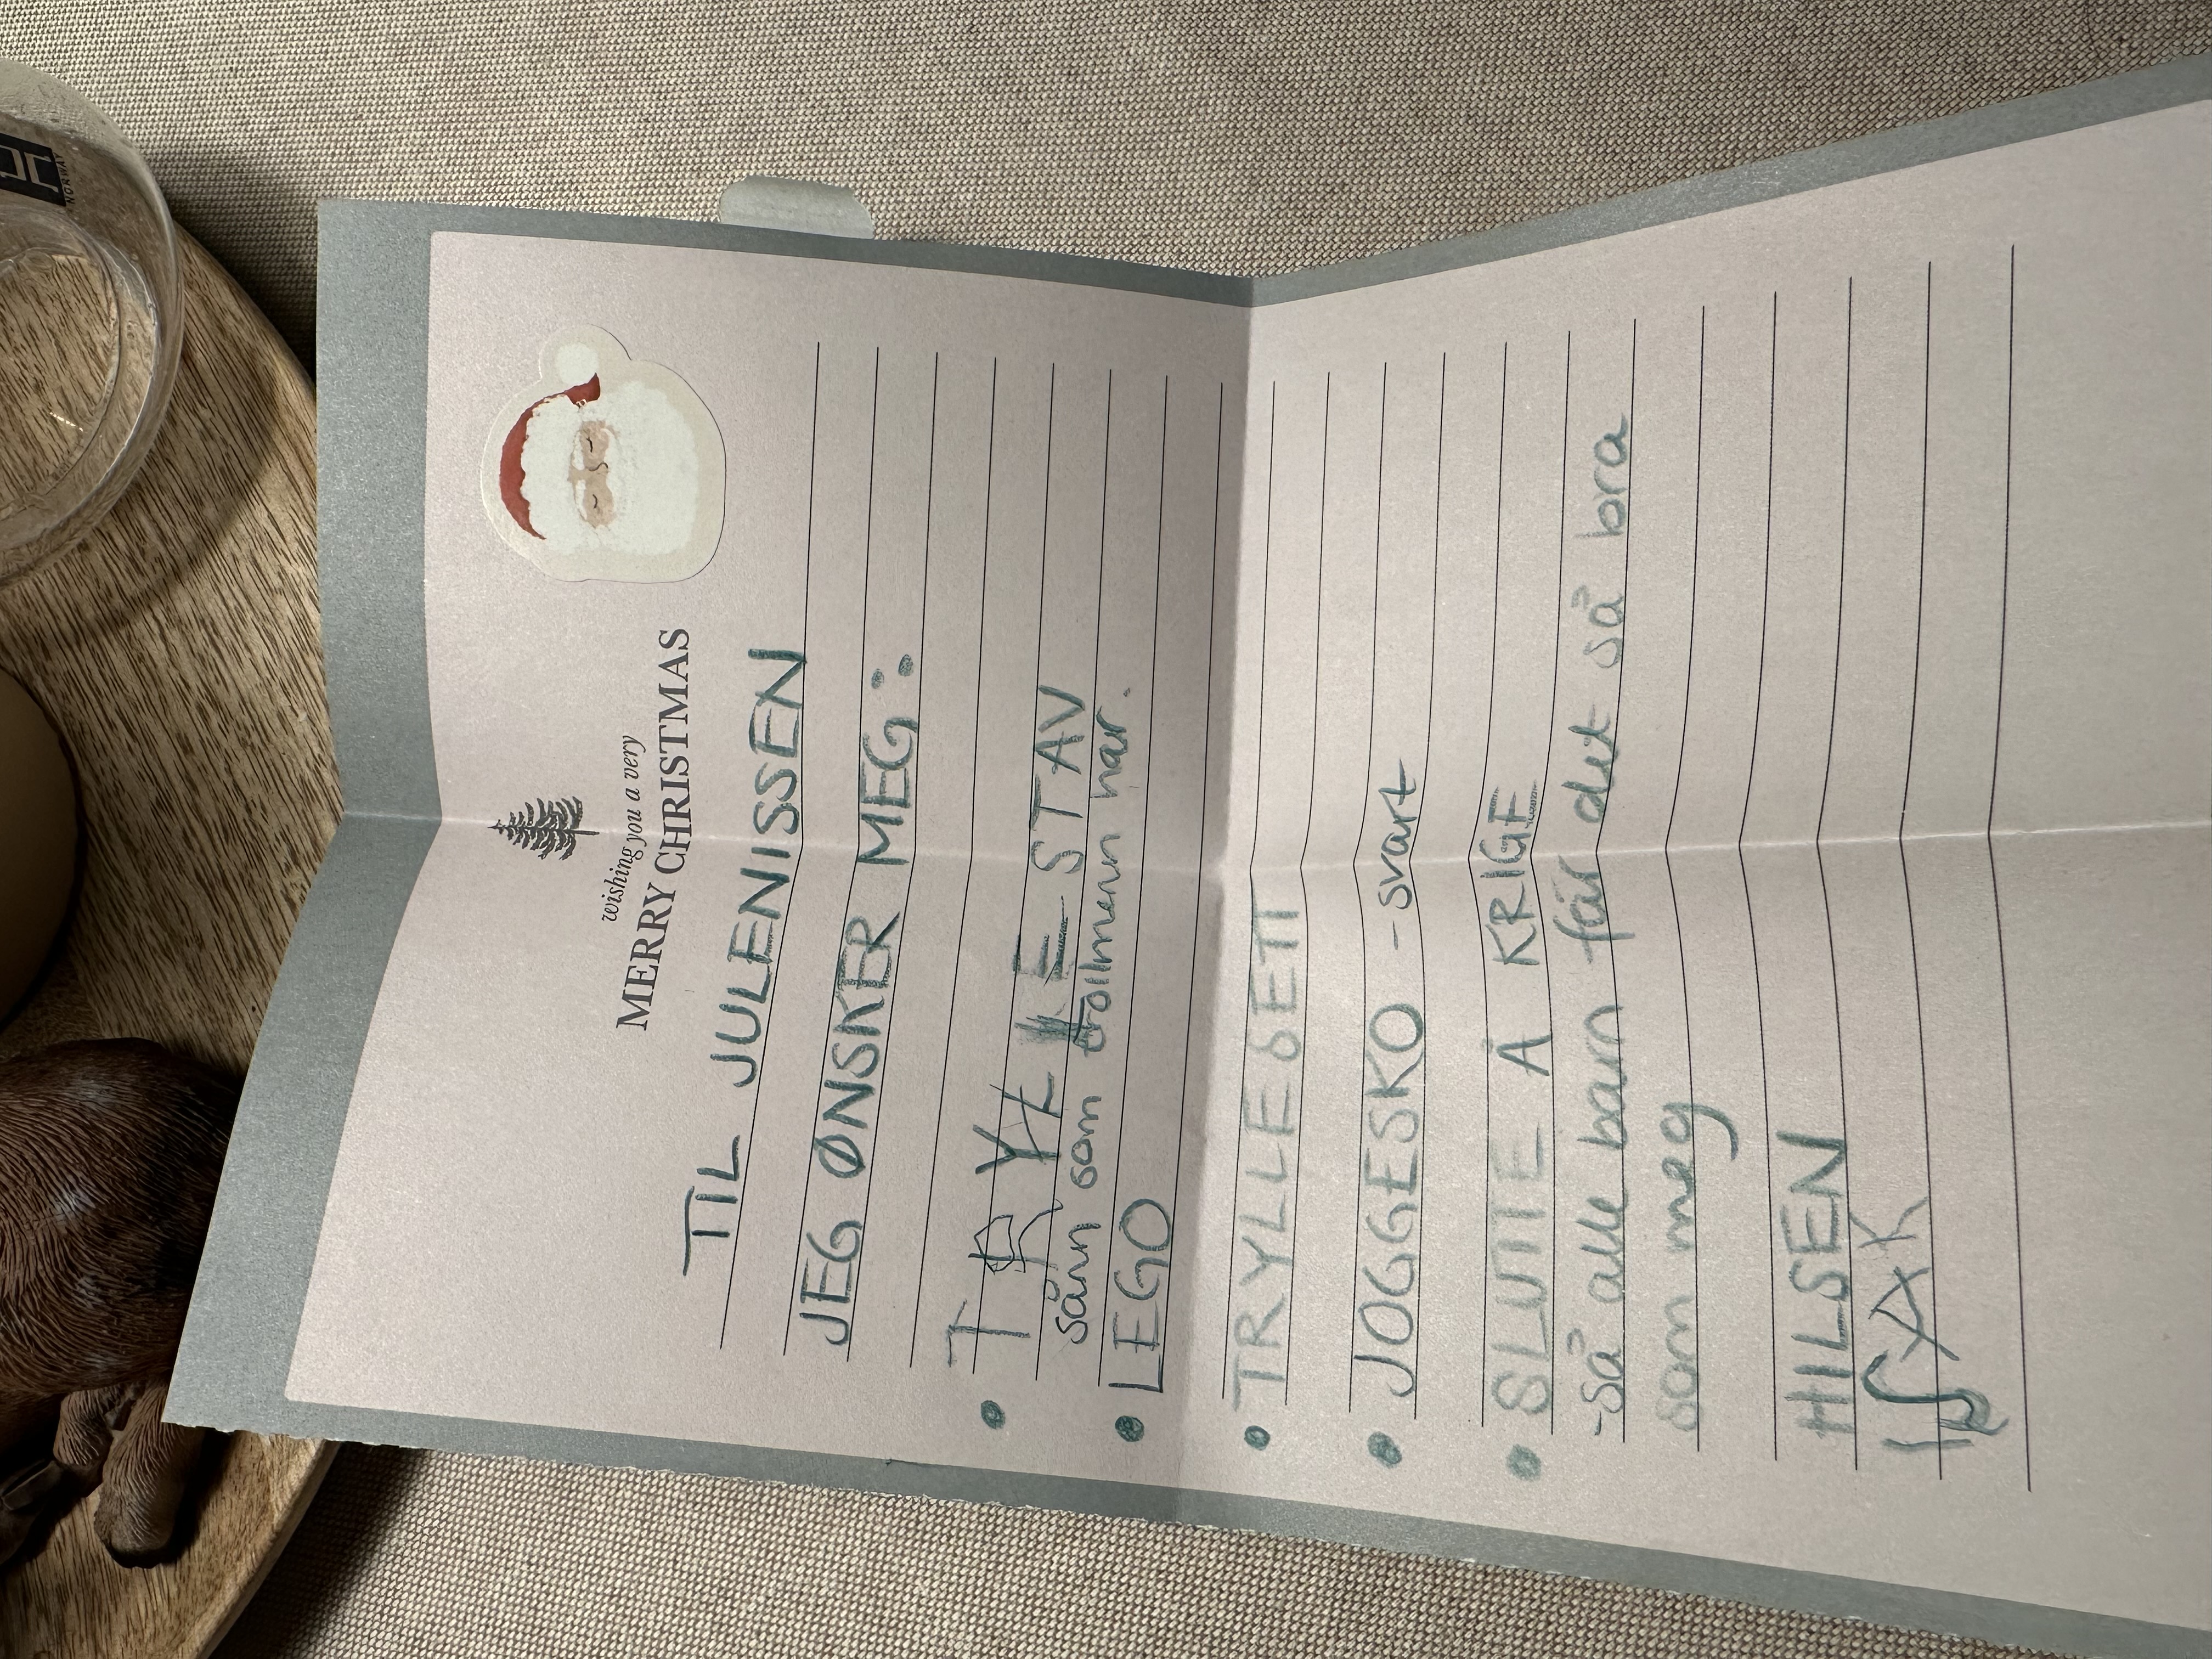 wishing you a very
MERRY CHRISTMAS
TIL JULENISSEN
JEG ØNSKER MEG:
• TRYLLESTAV
sånn som trollmenn har.
• LEGO
• TRYLLESETT
• JOGGESKO - svart
• SLUTTE Å KRIGE
-så alle barn får det så bra
som meg
HILSEN
ISAK
NORWAY